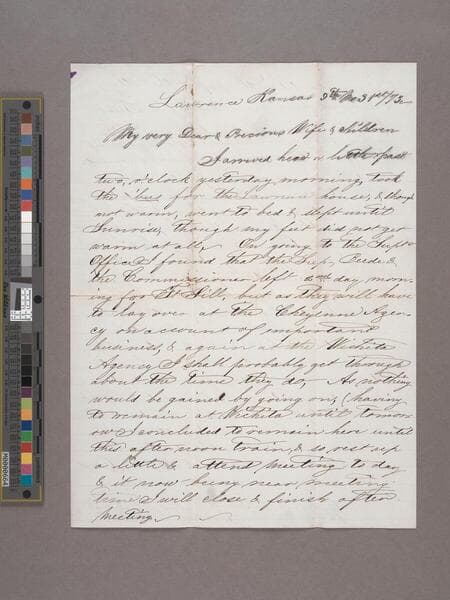 Lawrence Kansas 3rd Mo 31st/73
My very Dear & Precious Wife & children
I arrived here a little past
two, o'clock yesterday morning, took
the 'bus for the Lawrence house, & though
not warm, went to bed & slept until
Sunrise, though my feet did not get
warm at all, On going to the Supts
Office I found that the Sup, Beede &
the Commissioner left 2nd day morn-
ing for Ft Sill, but as they will have
to lay over at the Cheyenne Agen-
cy on account of important
business, & again at the Wichita
Agency I shall probably get through
about the time they do, As nothing
would be gained by going on, (having
to remain at Wichita until tomor
ow I concluded to remain here until
this afternoon train, & so rest up
a little & attend meeting to day
& it now being near meeting
time I will close & finish after
meeting